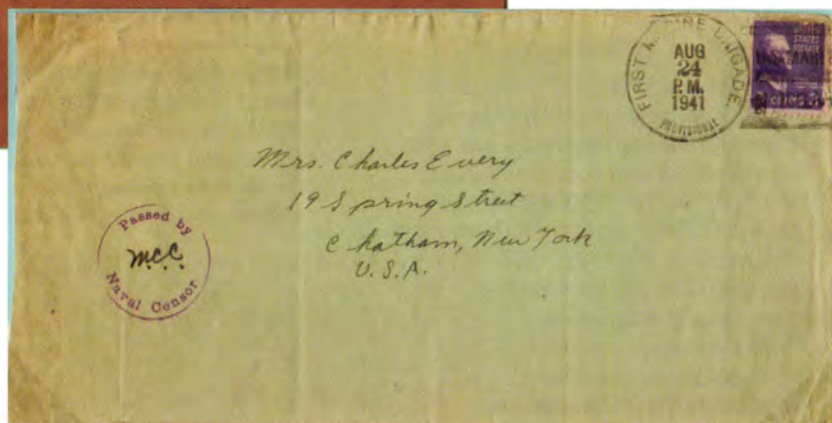 FIRST MARINE BRIGADE
AUG
24
P.M.
1941
PROVISIONAL
UNITED
STATES
POSTAGE
Mrs. Charles Every
19 Spring Street
Chatham, New York
U.S.A.
Passed by
MCC
Naval Censor